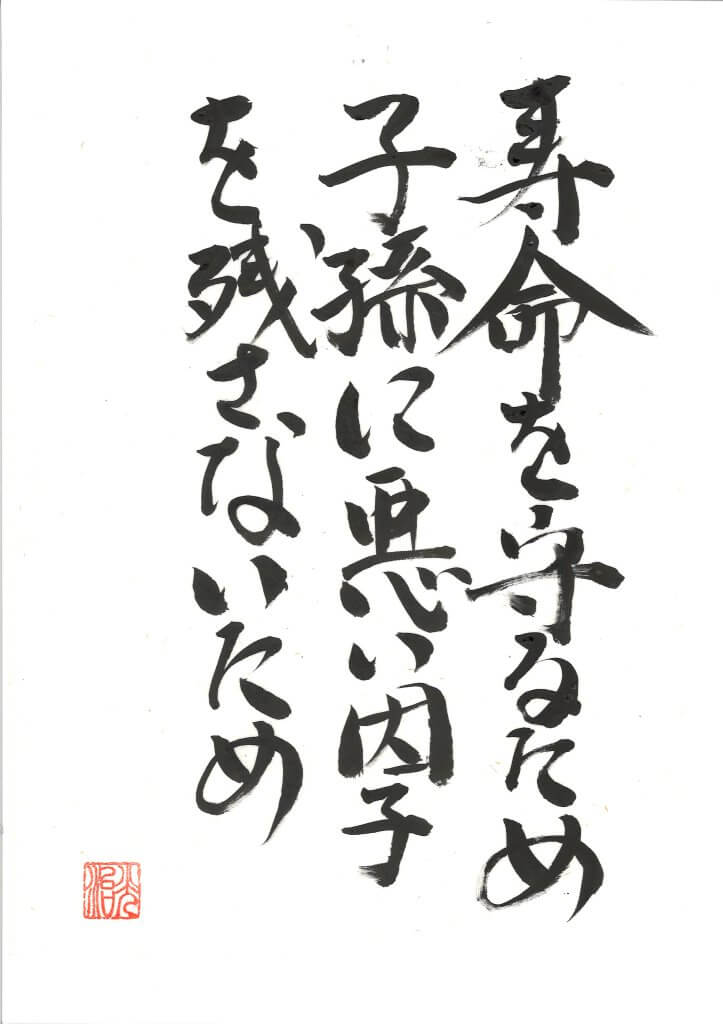 寿命を守るため
子孫に悪い因子
を残さないため